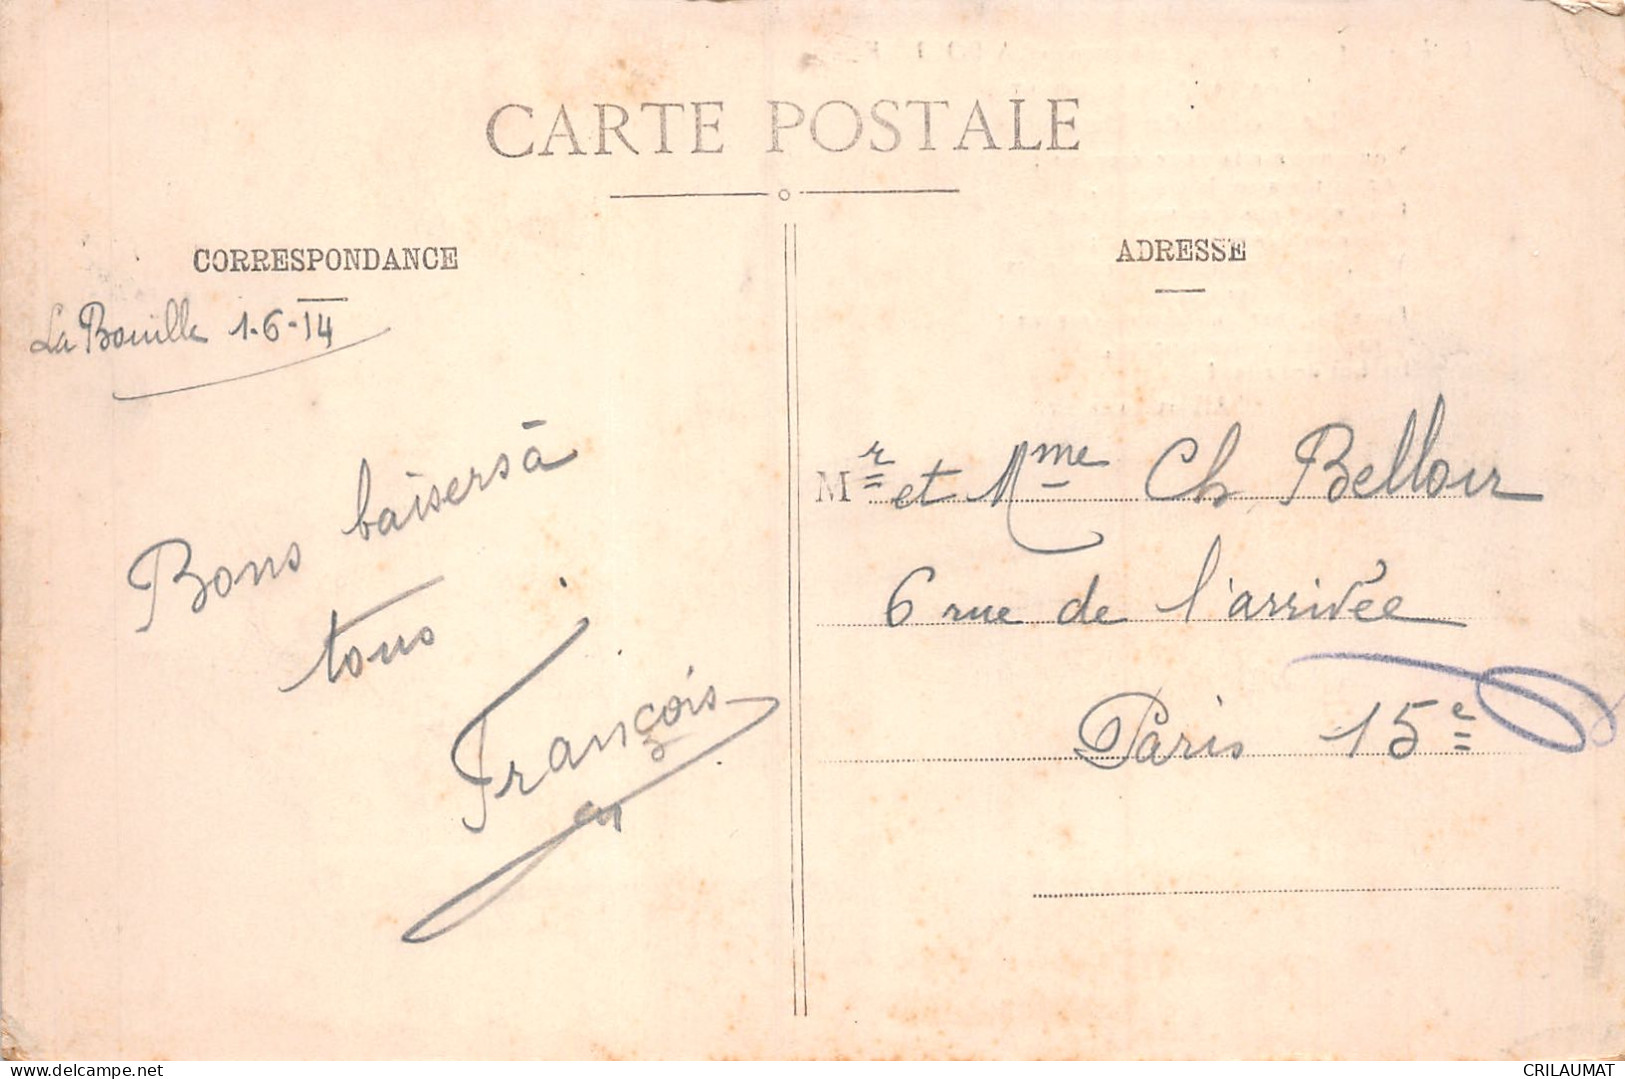 CARTE POSTALE
CORRESPONDANCE
La Bouille 1-6-14
Bons baisers à
tous
François
ADRESSE
Mr et Mme Ch Bellour
6 rue de l'arrivée
Paris 15e
delcampe.net
CRILAUMAT